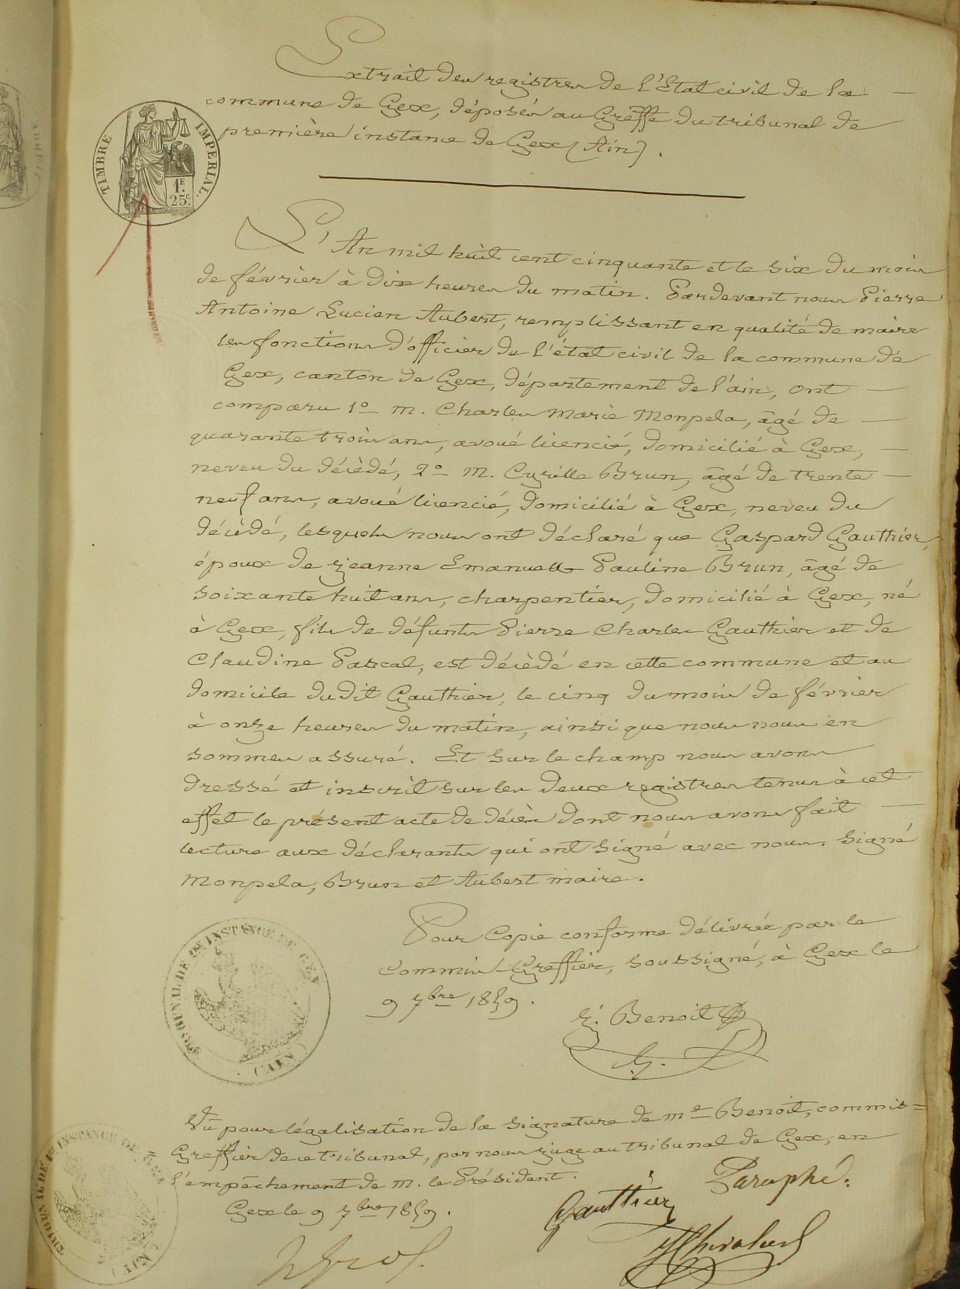 Extrait des registres de l'Etat civil de la
commune de Gex, déposés au Greffe du tribunal de
première instance de Gex (Ain).
TIMBRE IMPERIAL
1F.
25c.
L'An mil huit cent cinquante et le six du mois
de février à dix heures du matin. Pardevant nous Pierre
Antoine Lucien Aubert, remplissant en qualité de maire
les fonctions d'officier de l'état civil de la commune de
Gex, canton de Gex, département de l'ain, ont
comparu 1o m. Charles Marie Monpela, âgé de
quarante trois ans, avoué licencié, domicilié à Gex,
neveu du décédé, 2o M. Cyrille Brun, âgé de trente
neuf ans, avoué licencié, domicilié à Gex, neveu du
décédé, lesquels nous ont déclaré que Gaspard Gauthier,
époux de Jeanne Emanuelle Pauline Brun, âgé de
soixante huit ans, charpentier, domicilié à Gex, né
à Gex, fils de défunts Pierre Charles Gauthier et de
Claudine Pascal, est décédé en cette commune et au
domicile dudit Gauthier, le cinq du mois de février
à onze heures du matin, ainsi que nous nous en
sommes assuré. Et sur le champ nous avons
dressé et inscrit sur les deux registres tenus à cet
effet le présent acte de décès dont nous avons fait
lecture aux déclarants qui ont signé avec nous. Signé
Monpela, Brun et Aubert maire.
Pour Copie conforme délivrée par le
Commis-Greffier, soussigné, à Gex le
9 7bre 1859.
Benoit
Vu pour légalisation de la signature de me Benoit, commis=
Greffier de ce tribunal, par nous juge au tribunal de Gex, en
l'empêchement de M. le Président.
Gex le 9 7bre 1859.
Gauthier
Paraphé.